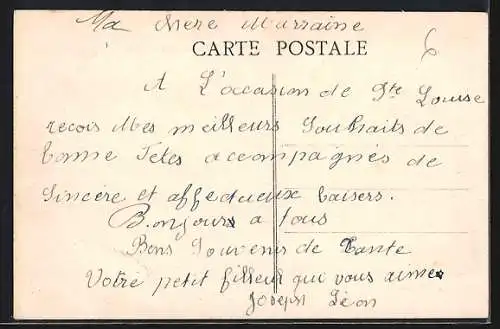 Ma chere Marraine
CARTE POSTALE
6
A L'occasion de Ste Louise
recois Mes meilleurs Souhaits de
bonne Fetes accompagnés de
Sincère et affectueux baisers.
Bonjours a tous
Bons Souvenir de Tante
Votre petit filleul qui vous aime
Joseph Léon